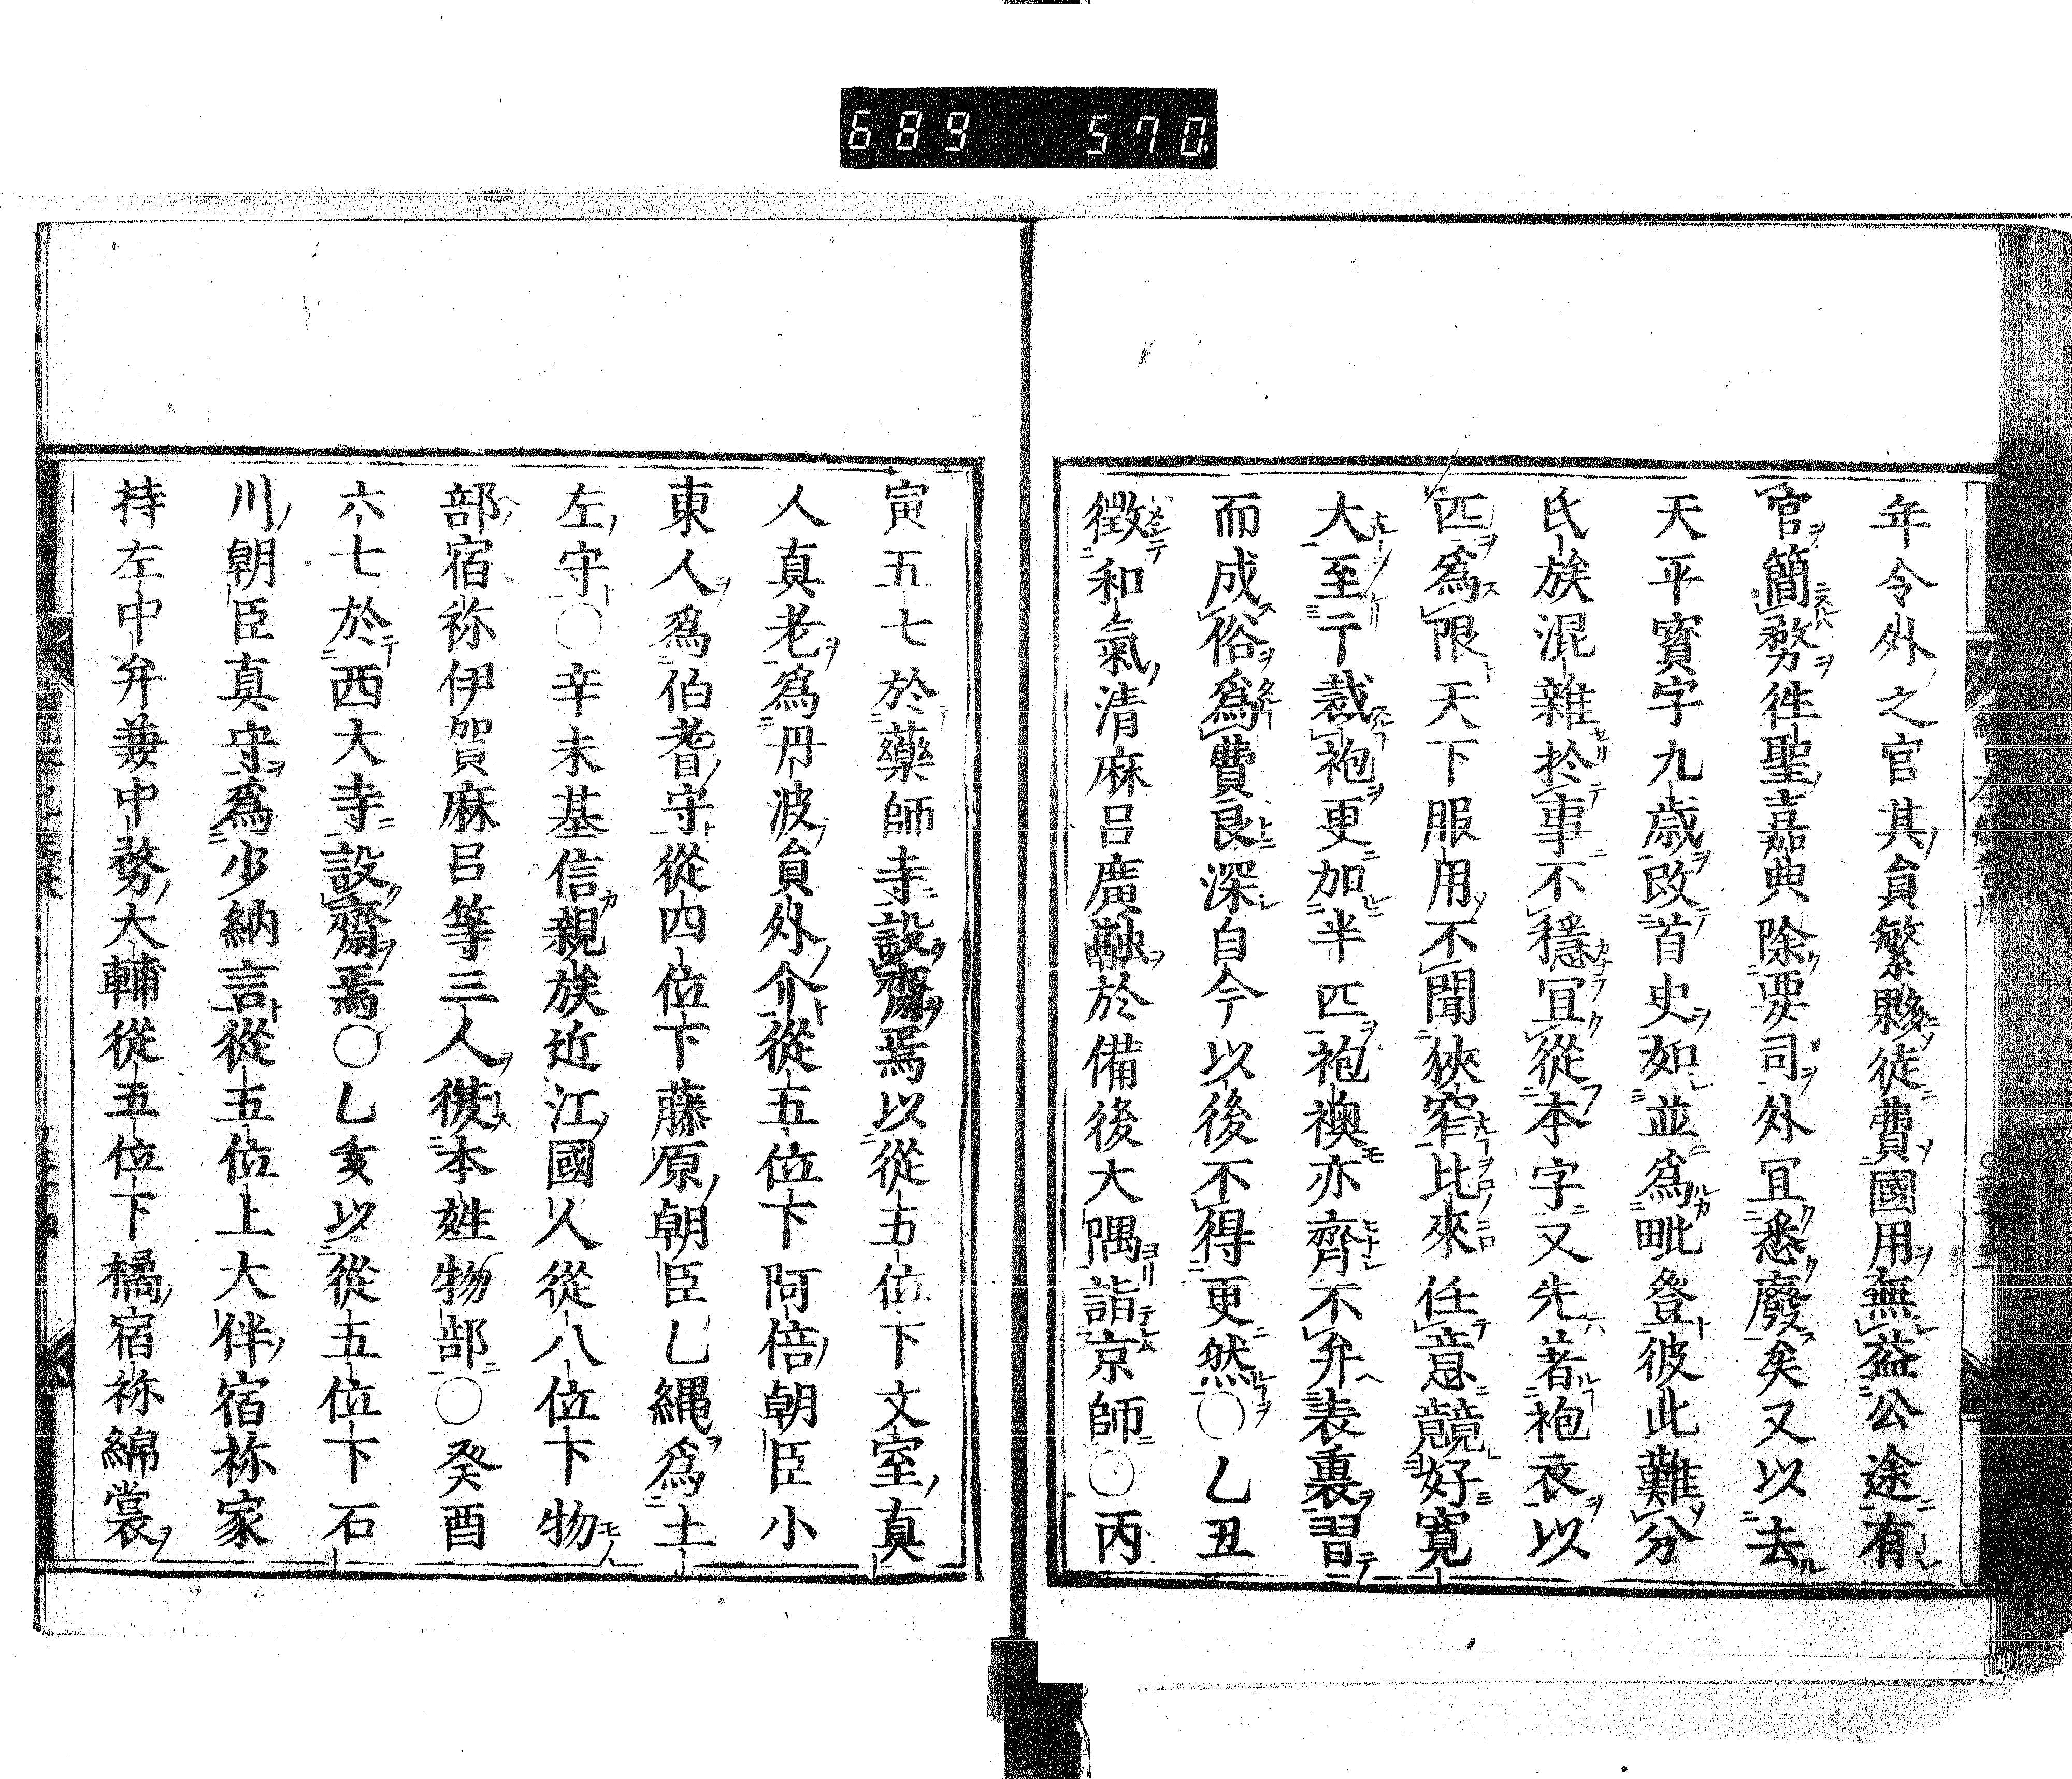 689 570.
年令外之官其員繁夥徒費國用無益公途有
官簡務徃聖嘉典除要司外冝悉廢矣又以去
天平寳字九歳改首史如並爲毗登彼此難分
氏族混雜於事不穩冝從本字又先著袍衣以
匹爲限天下服用不聞狹窄比來任意競好寛
大至于裁袍更加半匹袍襖亦齊不弁表裏習
而成俗爲費良深自今以後不得更然〇乙丑
徵和氣清麻呂廣融於備後大隅詣京師〇丙
寅五七於藥師寺設齋焉以從五位下文室真
人真老爲丹波員外介從五位下阿倍朝臣小
東人爲伯耆守從四位下藤原朝臣乙縄爲土
左守〇辛未基信親族近江國人從八位下物
部宿祢伊賀麻呂等三人復本姓物部〇癸酉
六七於西大寺設齋焉〇乙亥以從五位下石
川朝臣真守爲少納言從五位上大伴宿祢家
持左中弁兼中務大輔從五位下橘宿祢綿裳